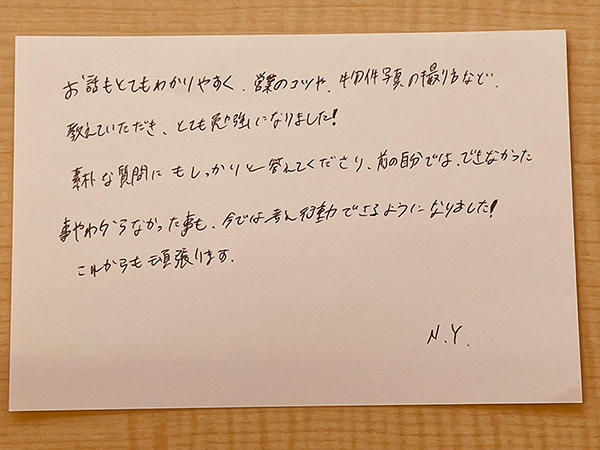 お話もとてもわかりやすく、営業のコツや、物件写真の撮り方など、
教えていただき、とても勉強になりました!
素朴な質問にもしっかりと答えてくださり、前の自分では、できなかった
事やわからなかった事も、今では考え行動できるようになりました!
これからも頑張ります。
N.Y.